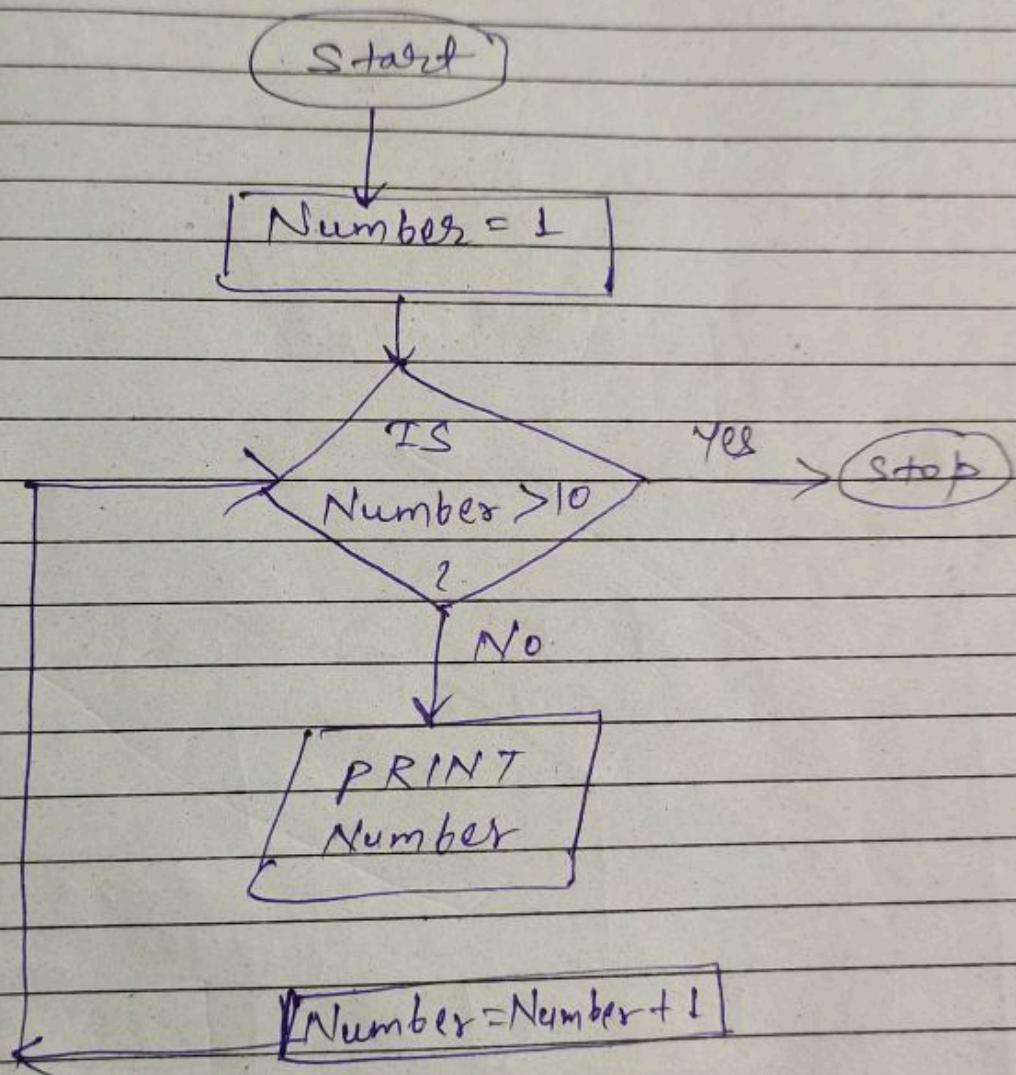 Start
Number = 1
IS
Number >10
?
Yes
Stop
No
PRINT
Number
Number=Number+1